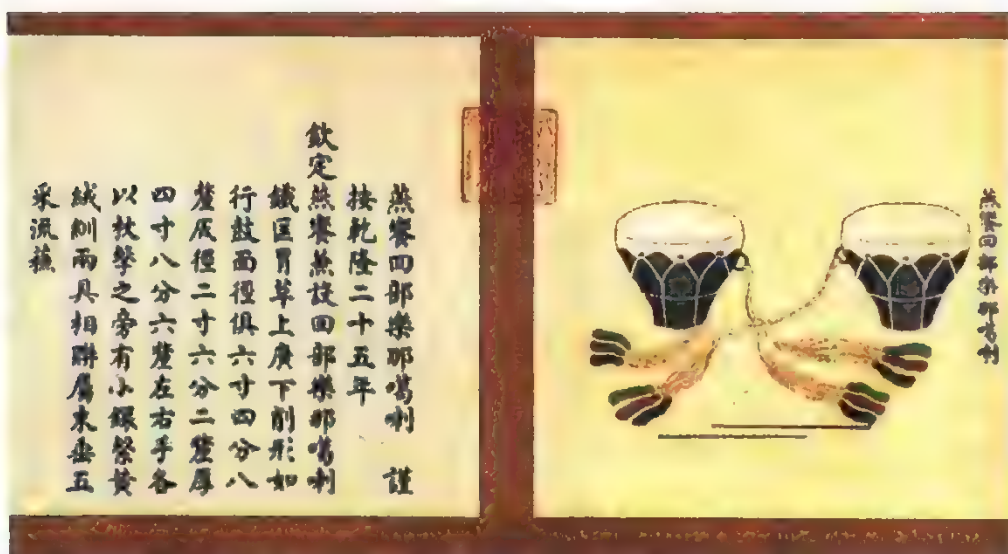 燕饗回部樂那噶喇
燕饗回部樂那噶喇　謹
按乾隆二十五年
欽定燕饗兼設回部樂那噶喇
鐵匡冒革上廣下削形如
行鼓面徑俱六寸四分八
釐底徑二寸六分二釐厚
四寸八分六釐左右手各
以杖擊之旁有小鐶繫黃
絨紃兩具相聯屬末垂五
采流蘇